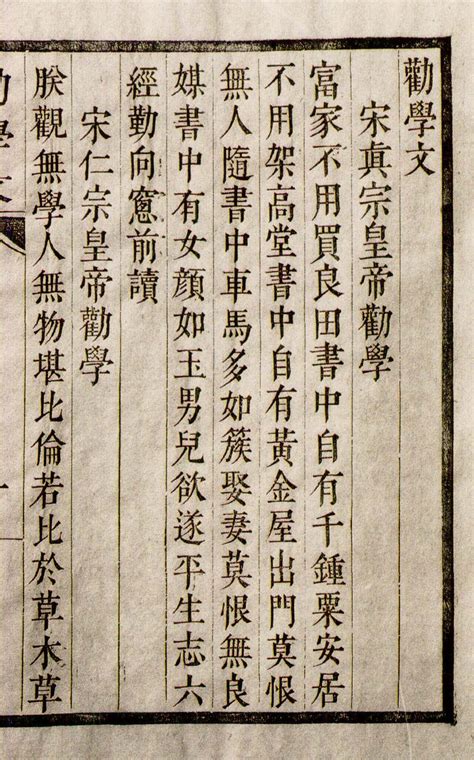 勸學文
宋眞宗皇帝勸學
富家不用買良田書中自有千鍾粟安居
不用架高堂書中自有黃金屋出門莫恨
無人隨書中車馬多如簇娶妻莫恨無良
媒書中有女顏如玉男兒欲遂平生志六
經勤向窻前讀
宋仁宗皇帝勸學
朕觀無學人無物堪比倫若比於草木草